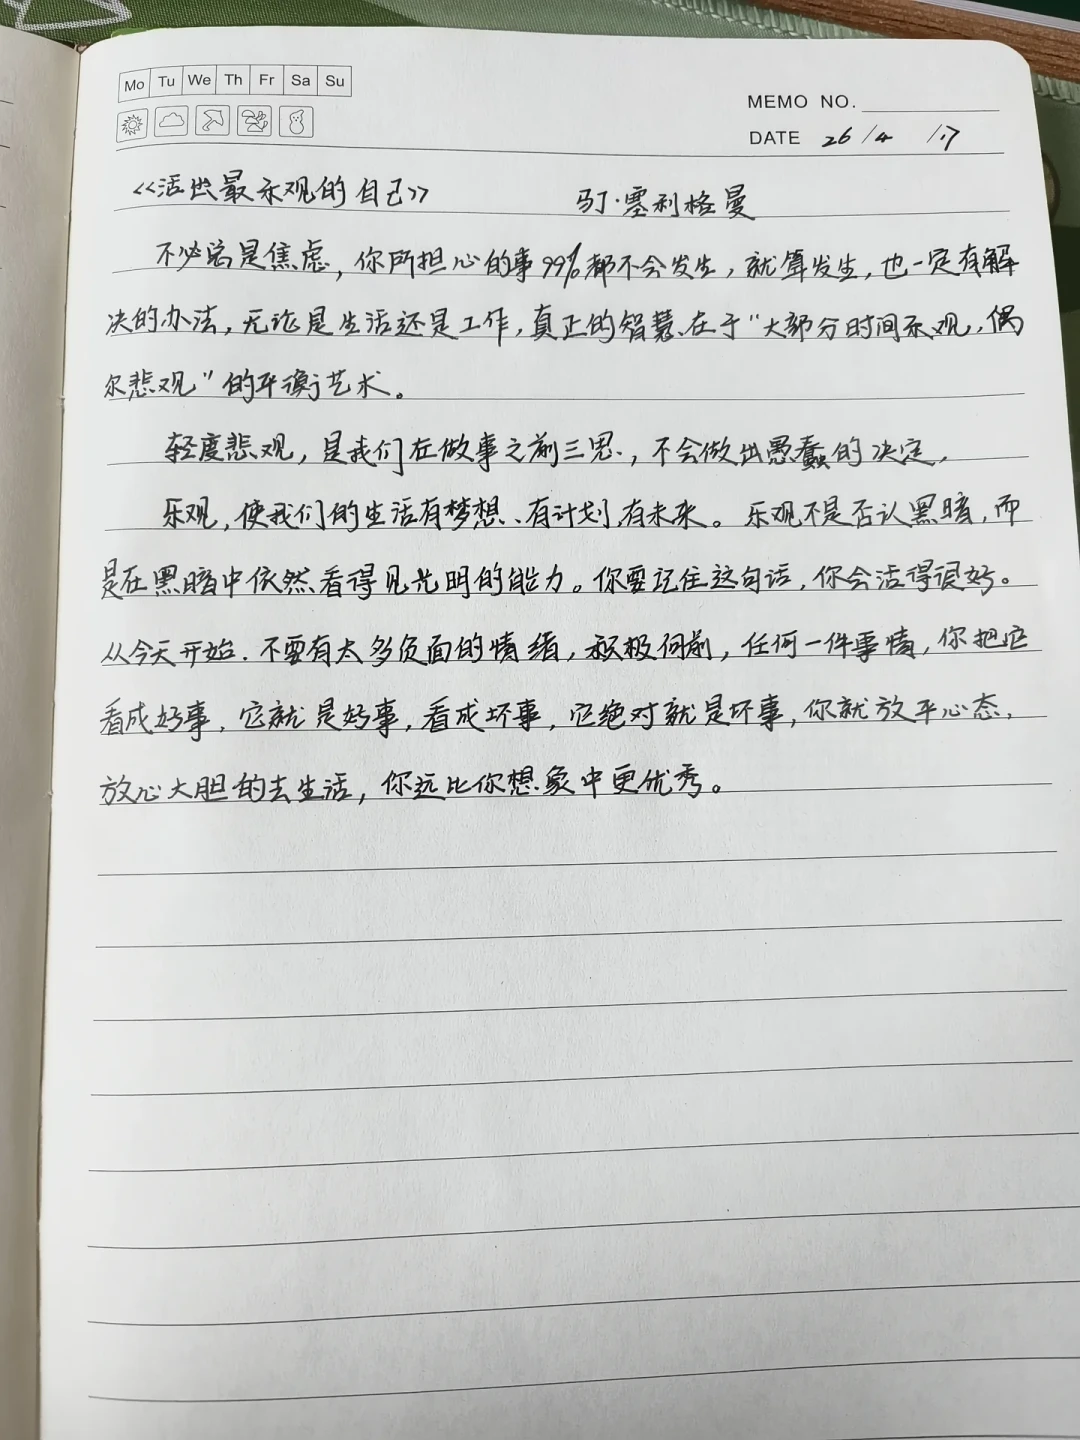 Mo Tu We Th Fr Sa Su
MEMO NO.
DATE 26/4/17
《活出最乐观的自己》 马丁·塞利格曼
不必总是焦虑，你所担心的事99%都不会发生，就算发生，也一定有解
决的办法，无论是生活还是工作，真正的智慧、在于“大部分时间乐观，偶
尔悲观”的平衡艺术。
轻度悲观，是我们在做事之前三思，不会做出愚蠢的决定，
乐观，使我们的生活有梦想、有计划，有未来。乐观不是否认黑暗，而
是在黑暗中依然看得见光明的能力。你要记住这句话，你会活得很好。
从今天开始．不要有太多负面的情绪，积极向前，任何一件事情，你把它
看成好事，它就是好事，看成坏事，它绝对就是坏事，你就放平心态，
放心大胆的去生活，你远比你想象中更优秀。